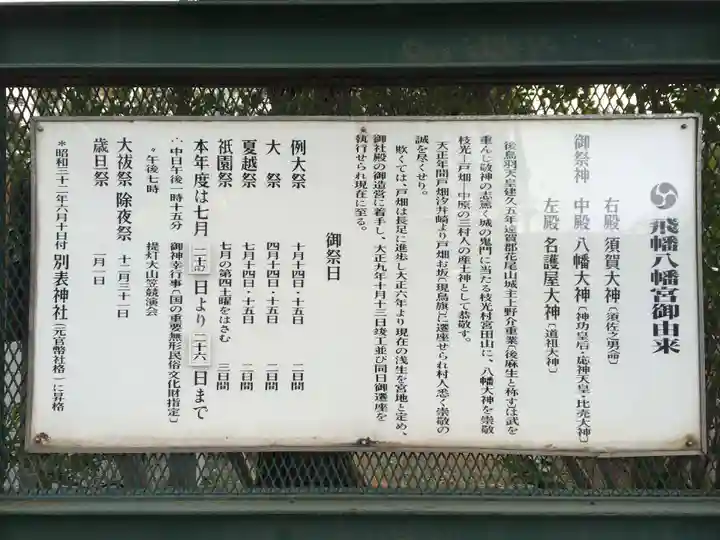 飛幡八幡宮御由来
右殿 須賀大神〔須佐之男命〕
御祭神 中殿 八幡大神〔神功皇后・応神天皇・比売大神〕
左殿 名護屋大神〔道祖大神〕
後鳥羽天皇建久五年遠賀郡花尾山城主上野介重業(後麻生と称す)は武を
重んじ敬神の志篤く城の鬼門に当たる枝光村宮田山に、八幡大神を崇敬
枝光―戸畑―中原の三村人の産土神として恭敬す。
天正年間戸畑汐井崎より戸畑お坂(現鳥旗)に遷座せられ村人悉く崇敬の
誠を尽くせり。
敗くては、戸畑は長足に進歩し大正六年より現在の浅生を宮地と定め、
御社殿の御造営に着手し、大正九年十月十三日竣工並び同日御遷座を
執行せられ現在に至る。
御祭日
例大祭 十月十四日・十五日 二日間
大祭 四月十四日・十五日 二日間
夏越祭 七月十四日・十五日 二日間
祇園祭 七月の第四土曜をはさむ 三日間
本年度は七月二十四日より二十六日まで
中日午後一時十五分 御神幸行事〔国の重要無形民俗文化財指定〕
〃午後七時 提灯大山笠競演会
大祓祭 除夜祭 十二月三十一日
歳旦祭 一月一日
*昭和三十二年六月十日付 別表神社(元官幣社格)に昇格